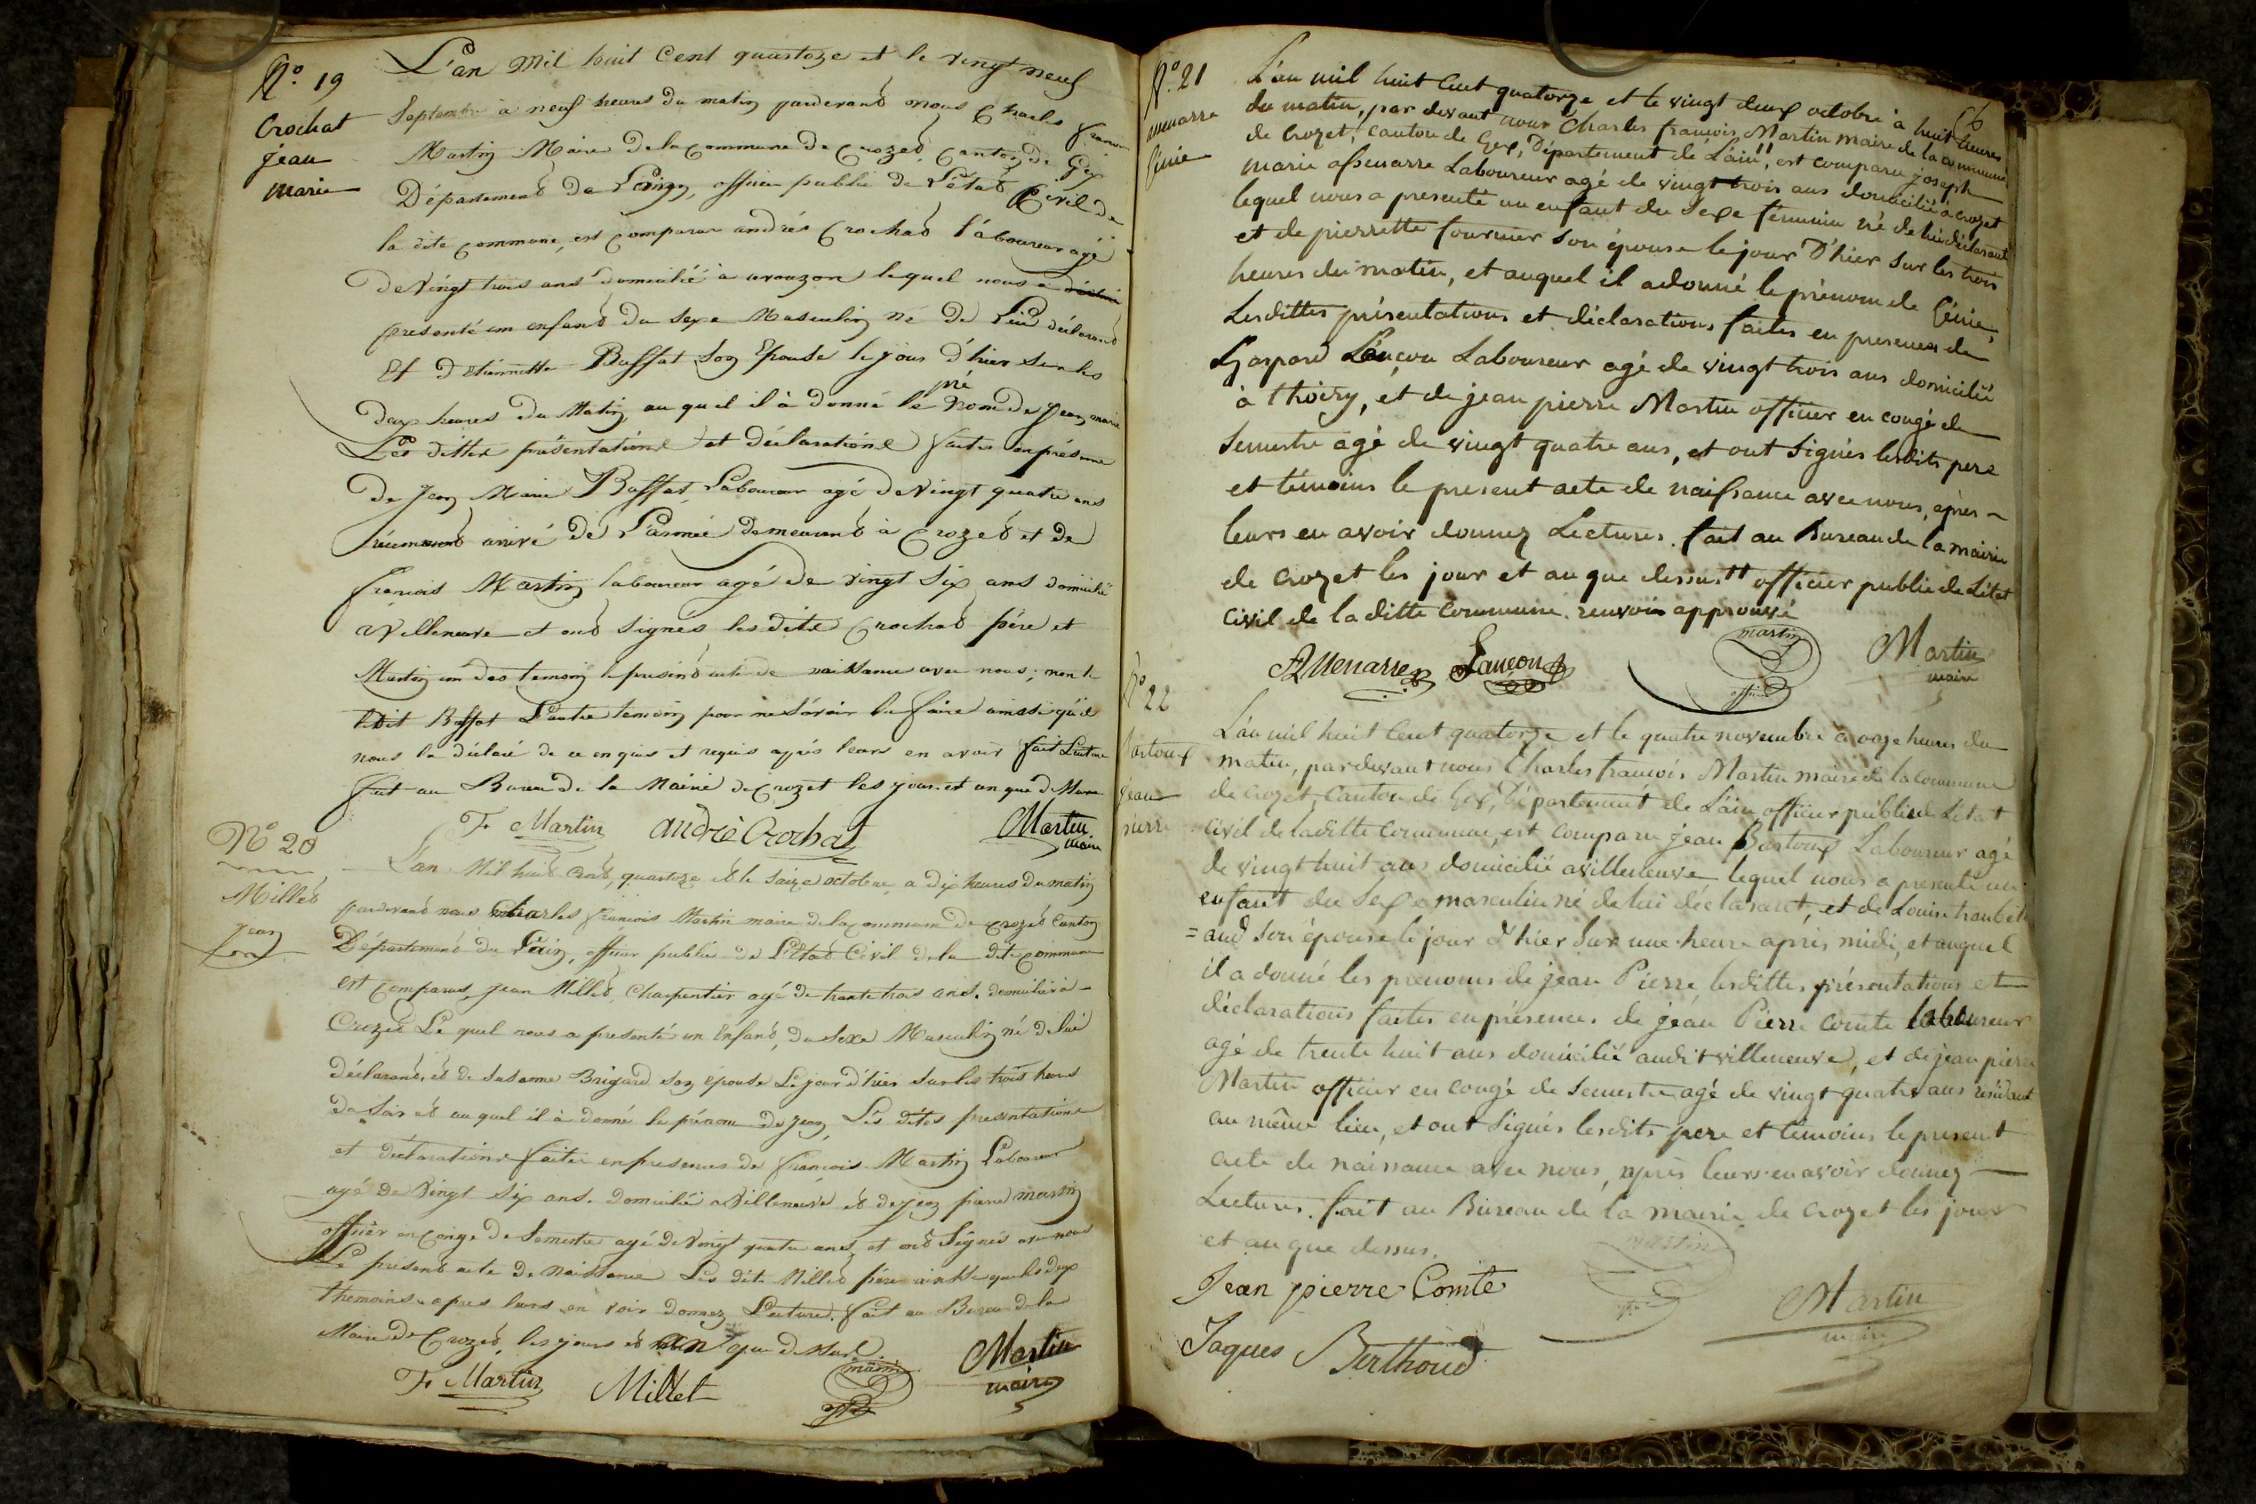 N°. 19
Crochat
jean
marie
L'an Mil huit Cent quastoze et le vingt neuf
Septembre à neuf heures du matin pardevand nous Charles françois
Martin Maire de la Commune de Crozed, Canton de Gex
Départemend de L'ain, officier public de L'étad Civil de
la dite Commune, est Comparu andrés Crochad l'aboureur agé
De Vingt trois ans domicilié à avouzon lequel nous a
présenté un enfand du sexe Masculin né de Lui déclarand
Et d'Etiennette Baffat son Epouse le jour d'hier sur les
dix heures du Matin, au quel il à donné le prénom de Jean marie
Les dittes présentations et déclarations faites en présence
De Jean Marie Baffat, Laboureur agé de Vingt quatre ans
récemmend arrivé de L'armée demeurand à Crozed et de
françois Martin laboureur agé de vingt Six ans domicilié
a Villeneuve et ond signés les dits Crochad père et
Martin un des temoin le présend acte de naissance avec nous; non le
dit Baffat L'autre temoin pour ne Savoir le faire ainsi qu'il
nous la déclaré de ce enquis et requis après leurs en avoir fait Lecture
fait au Bureau de la Mairie de Crozet les jour et an que dessus
F. Martin andrè Crochat Martin
maire
N° 20
Milled
Jean
L'an Mil huid Cend, quastoze et le Saize octobre, a dix heures du matin
pardevand nous Charles françois Martin maire de la commune de Crozed Canton
Départemend de L'ain, officier public de L'Etad Civil de la dite Commune
est Comparus, jean Milled, Charpentier agé de trente trois ans. domicilié à
Crozed Le quel nous a présenté un Enfand, du Sexe Masculin né de lui
déclarand, et de Susanne Brigard son épouse Le jour d'hier sur les trois heures
du Soir et au quel il à donné le prénom de Jean, Les dites présentations
et déclarations faites en presences de françois Martin Laboureur
agé de Vingt Six ans. domicilié a Villeneuve et de Jean pierre martin
officier en Congé de Semestre agé de Vingt quatre ans, et ond Signés avec nous
Le présend acte de Naissance Les dits Milled père ainsi que les deux
themoins apres leurs en voir donnez Lecture. fait au Bureau de la
Maire de Crozed, les jours et an que dessus.
F. Martin Millet martin Martin
maire
N°. 21
menarre
Génie
L'an mil huit cent quatorze et le vingt deux octobre à huit heures
du matin, par devant nous Charles françois Martin maire de la commune
de Crozet, canton de Gex, Département de L'ain", est comparu joseph
marie assenarre Laboureur agé de vingt trois ans domicilié à crozet
lequel nous a presenté un enfant du Sexe feminin né de lui déclarant
et de pierrette fournier son épouse le jour D'hier sur les trois
heures du matin, et auquel il a donné le prénom de Génie,
Lesdittes présentations et déclarations faites en presence de
Gaspard Lançon Laboureur agé de vingt trois ans domicilié
à thoiry, et de jean pierre Martin officier en congé de
Semestre agé de vingt quatre ans, et ont Signés lesdits pere
et témoins le present acte de naissance avec nous, après
leurs en avoir donnez Lectures. fait au Bureau de la mairie
de crozet les jour et an que dessus" officier public de L'état
civil de laditte commune renvoi approuvé
Lançon martin Martin
maire
N° 22
Bartoux
jean
pierre
L'an mil huit cent quatorze et le quatre novembre à onze heures du
matin, pardevant nous Charles françois Martin maire de la commune
de crozet, canton de Gex, Département de L'ain officier public de L'état
civil de laditte commune, est comparu jean Bartoux Laboureur agé
de vingt huit ans domicilié a villeneuve lequel nous a presenté un
enfant du Sexe masculin né de lui déclarant, et de Louise
= aud son épouse le jour d'hier sur une heure après midi, et auquel
il a donné les prenoms de jean Pierre, lesdittes présentations et
déclarations faites en présences de jean Pierre comte laboureur
agé de trente huit ans domicilié audit villeneuve, et de jean pierre
Martin officier en congé de Semestre agé de vingt quatre ans résidant
au même lieu, et ont Signés lesdits pere et témoins le present
acte de naissance avec nous, après leurs en avoir donnez
Lectures. fait au Bureau de la mairie de crozet les jour
et an que dessus.
Jean pierre Comte martin Martin
maire
Jaques Berthoud